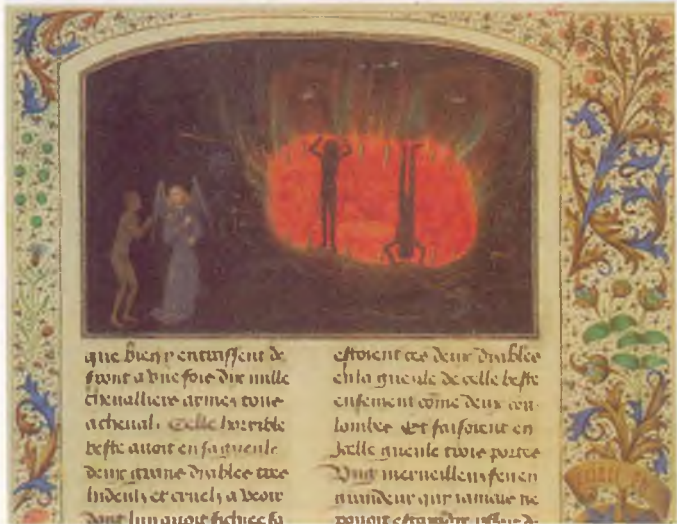 que bien y entraissent de
front a une fois dix mille
chevalliers armes tous
a cheval. Celle horrible
beste avoit en sa gueule
deux grans diables tres
hideulx et cruelz a veoir
dont lun avoit fichiee sa
estoient ces deux diables
en la gueule de celle beste
ensement come deux cou-
lombes et faisoient en
Jcelle gueule trois portes
Ung merveilleux feu en
grandeur qui jamais ne
pouoit estaindre